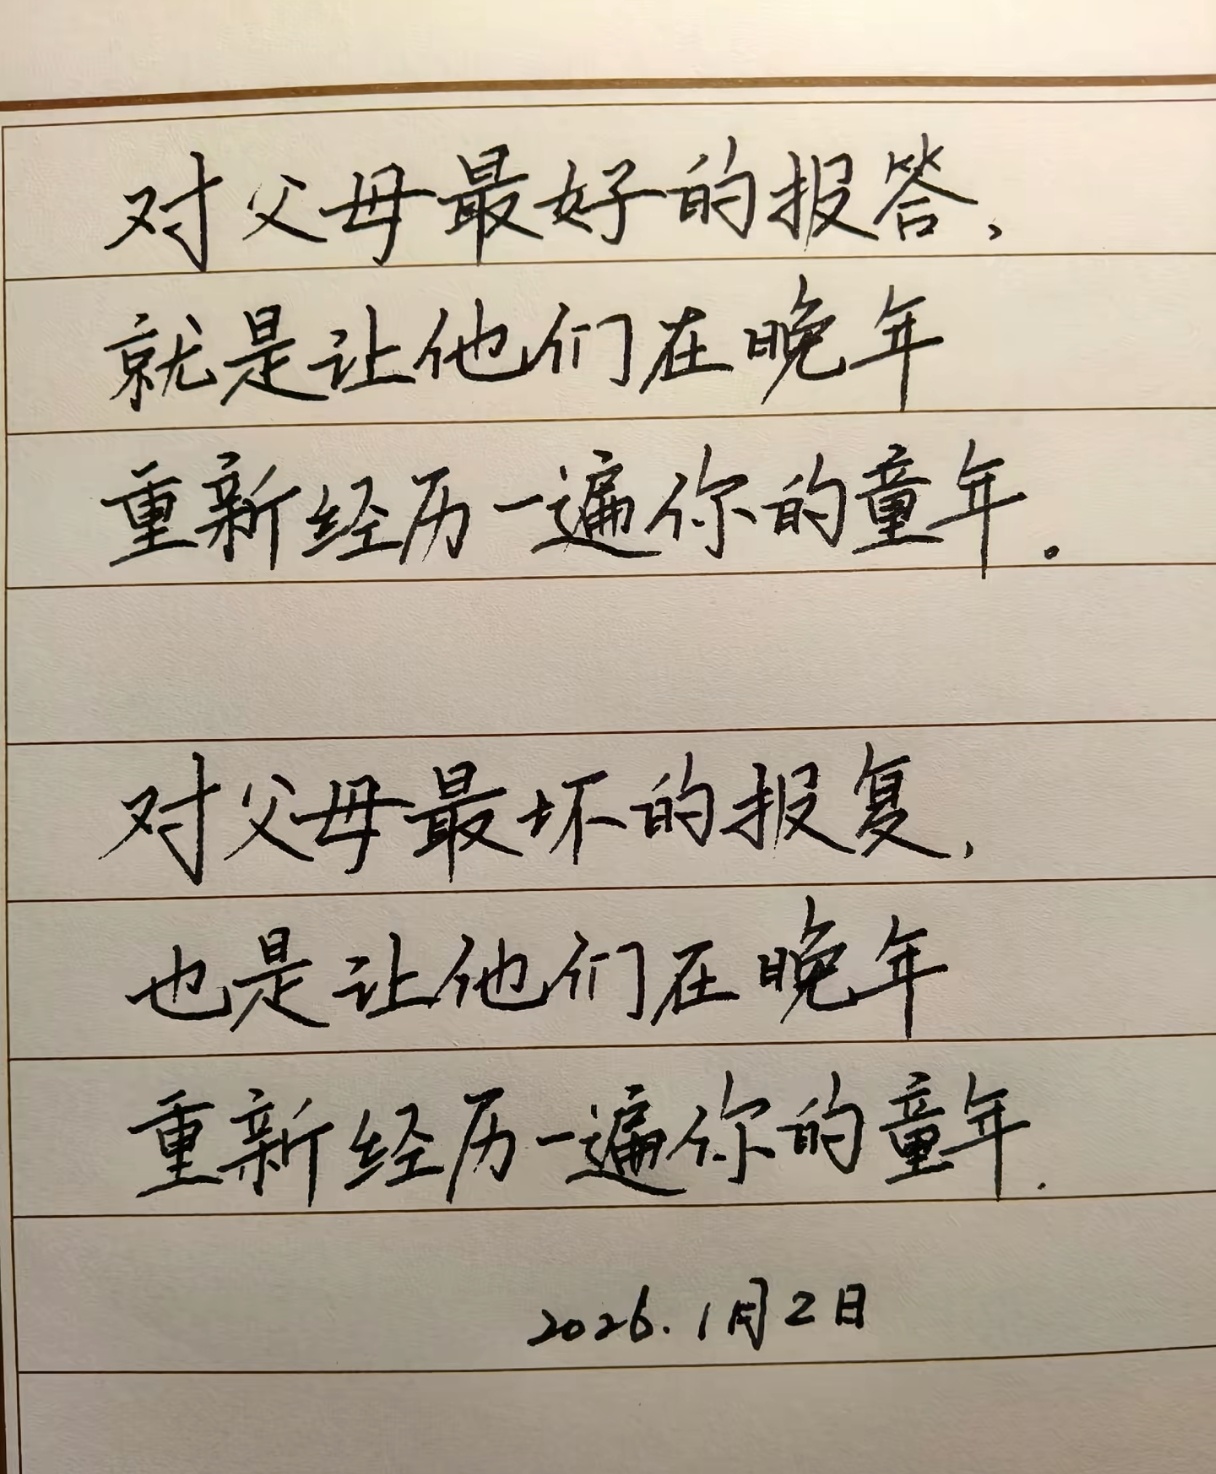 对父母最好的报答,
就是让他们在晚年
重新经历一遍你的童年.
对父母最坏的报复,
也是让他们在晚年
重新经历一遍你的童年.
2026.1月2日